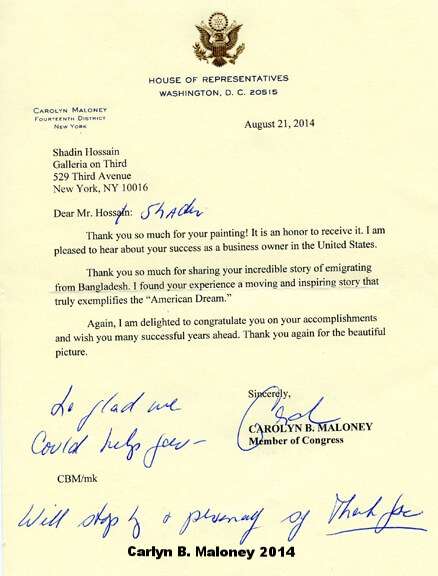 HOUSE OF REPRESENTATIVES
WASHINGTON, D. C. 20515
CAROLYN MALONEY
FOURTEENTH DISTRICT
NEW YORK
August 21, 2014
Shadin Hossain
Galleria on Third
529 Third Avenue
New York, NY 10016
Dear Mr. Hossain: Shadin
Thank you so much for your painting! It is an honor to receive it. I am
pleased to hear about your success as a business owner in the United States.
Thank you so much for sharing your incredible story of emigrating
from Bangladesh. I found your experience a moving and inspiring story that
truly exemplifies the “American Dream.”
Again, I am delighted to congratulate you on your accomplishments
and wish you many successful years ahead. Thank you again for the beautiful
picture.
Sincerely,
CAROLYN B. MALONEY
Member of Congress
So glad we
Could help you –
CBM/mk
Will stop by & personally say Thank you
Carlyn B. Maloney 2014